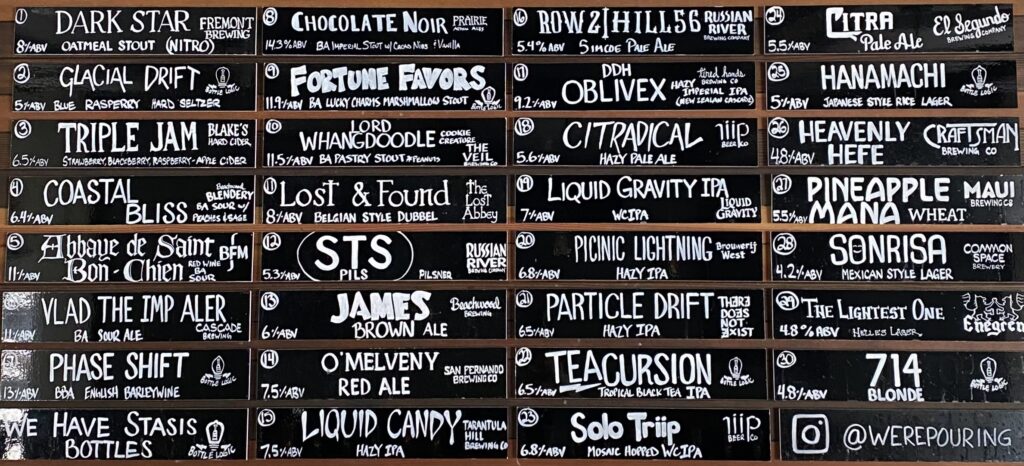 1 DARK STAR FREMONT BREWING
8%ABV OATMEAL STOUT (NITRO)
2 GLACIAL DRIFT BOTTLE LOGIC
5%ABV BLUE RASPERRY HARD SELTZER
3 TRIPLE JAM BLAKE'S HARD CIDER
6.5%ABV STRAWBERRY, BLACKBERRY, RASPBERRY-APPLE CIDER
4 COASTAL BLISS Beachwood BLENDERY
6.4%ABV BA SOUR W/ PEACHES & SAGE
5 Abbaye de Saint Bon-Chien BFM
11%ABV RED WINE BA SOUR
VLAD THE IMPALER CASCADE BREWING
11%ABV BA SOUR ALE
PHASE SHIFT BOTTLE LOGIC
13%ABV BBA ENGLISH BARLEYWINE
WE HAVE STASIS BOTTLES BOTTLE LOGIC
8 CHOCOLATE NOIR PRAIRIE ARTISAN ALES
14.3%ABV BA IMPERIAL STOUT W/ CACAO NIBS & VANILLA
9 FORTUNE FAVORS BOTTLE LOGIC
11.9%ABV BA LUCKY CHARMS MARSHMALLOW STOUT
10 LORD WHANGDOODLE COOKIE CREATURE
11.5%ABV BA PASTRY STOUT w/PEANUTS THE VEIL BREWING CO
11 LOST & FOUND the LOST Abbey
8%ABV BELGIAN STYLE DUBBEL
12 STS PILS RUSSIAN RIVER BREWING COMPANY
5.3%ABV PILSNER
13 JAMES Beachwood BREWING
6%ABV BROWN ALE
14 O'MELVENY SAN FERNANDO BREWING CO
7.5%ABV RED ALE
15 LIQUID CANDY TARANTULA HILL BREWING CO
7.5%ABV HAZY IPA
16 ROW 2 | HILL 56 RUSSIAN RIVER BREWING COMPANY
5.4%ABV SIMCOE PALE ALE
17 DDH OBLIVEX tired hands BREWING CO
9.2%ABV HAZY IMPERIAL IPA (NEW ZEALAND CASCADE)
18 CITRADICAL riip BEER CO
5.6%ABV HAZY PALE ALE
19 LIQUID GRAVITY IPA LIQUID GRAVITY
7%ABV WCIPA
20 PICINIC LIGHTNING Brouwerij West
6.8%ABV HAZY IPA
21 PARTICLE DRIFT THERE DOES NOT EXIST
6.5%ABV HAZY IPA
22 TEACURSION BOTTLE LOGIC
6.5%ABV TROPICAL BLACK TEA IPA
23 SOLO TRiiP riip BEER CO
6.8%ABV MOSAIC HOPPED WCIPA
24 CITRA Pale Ale El Segundo BREWING COMPANY
5.5%ABV
25 HANAMACHI BOTTLE LOGIC
5%ABV JAPANESE STYLE RICE LAGER
26 HEAVENLY HEFE CRAFTSMAN BREWING CO
4.8%ABV
27 PINEAPPLE MANA WHEAT MAUI BREWING CO
5.5%ABV
28 SONRISA COMMON SPACE BREWERY
4.2%ABV MEXICAN STYLE LAGER
29 THE LIGHTEST ONE Enegren
4.8%ABV HELLES LAGER
30 714 BOTTLE LOGIC
4.8%ABV BLONDE
@WEREPOURING